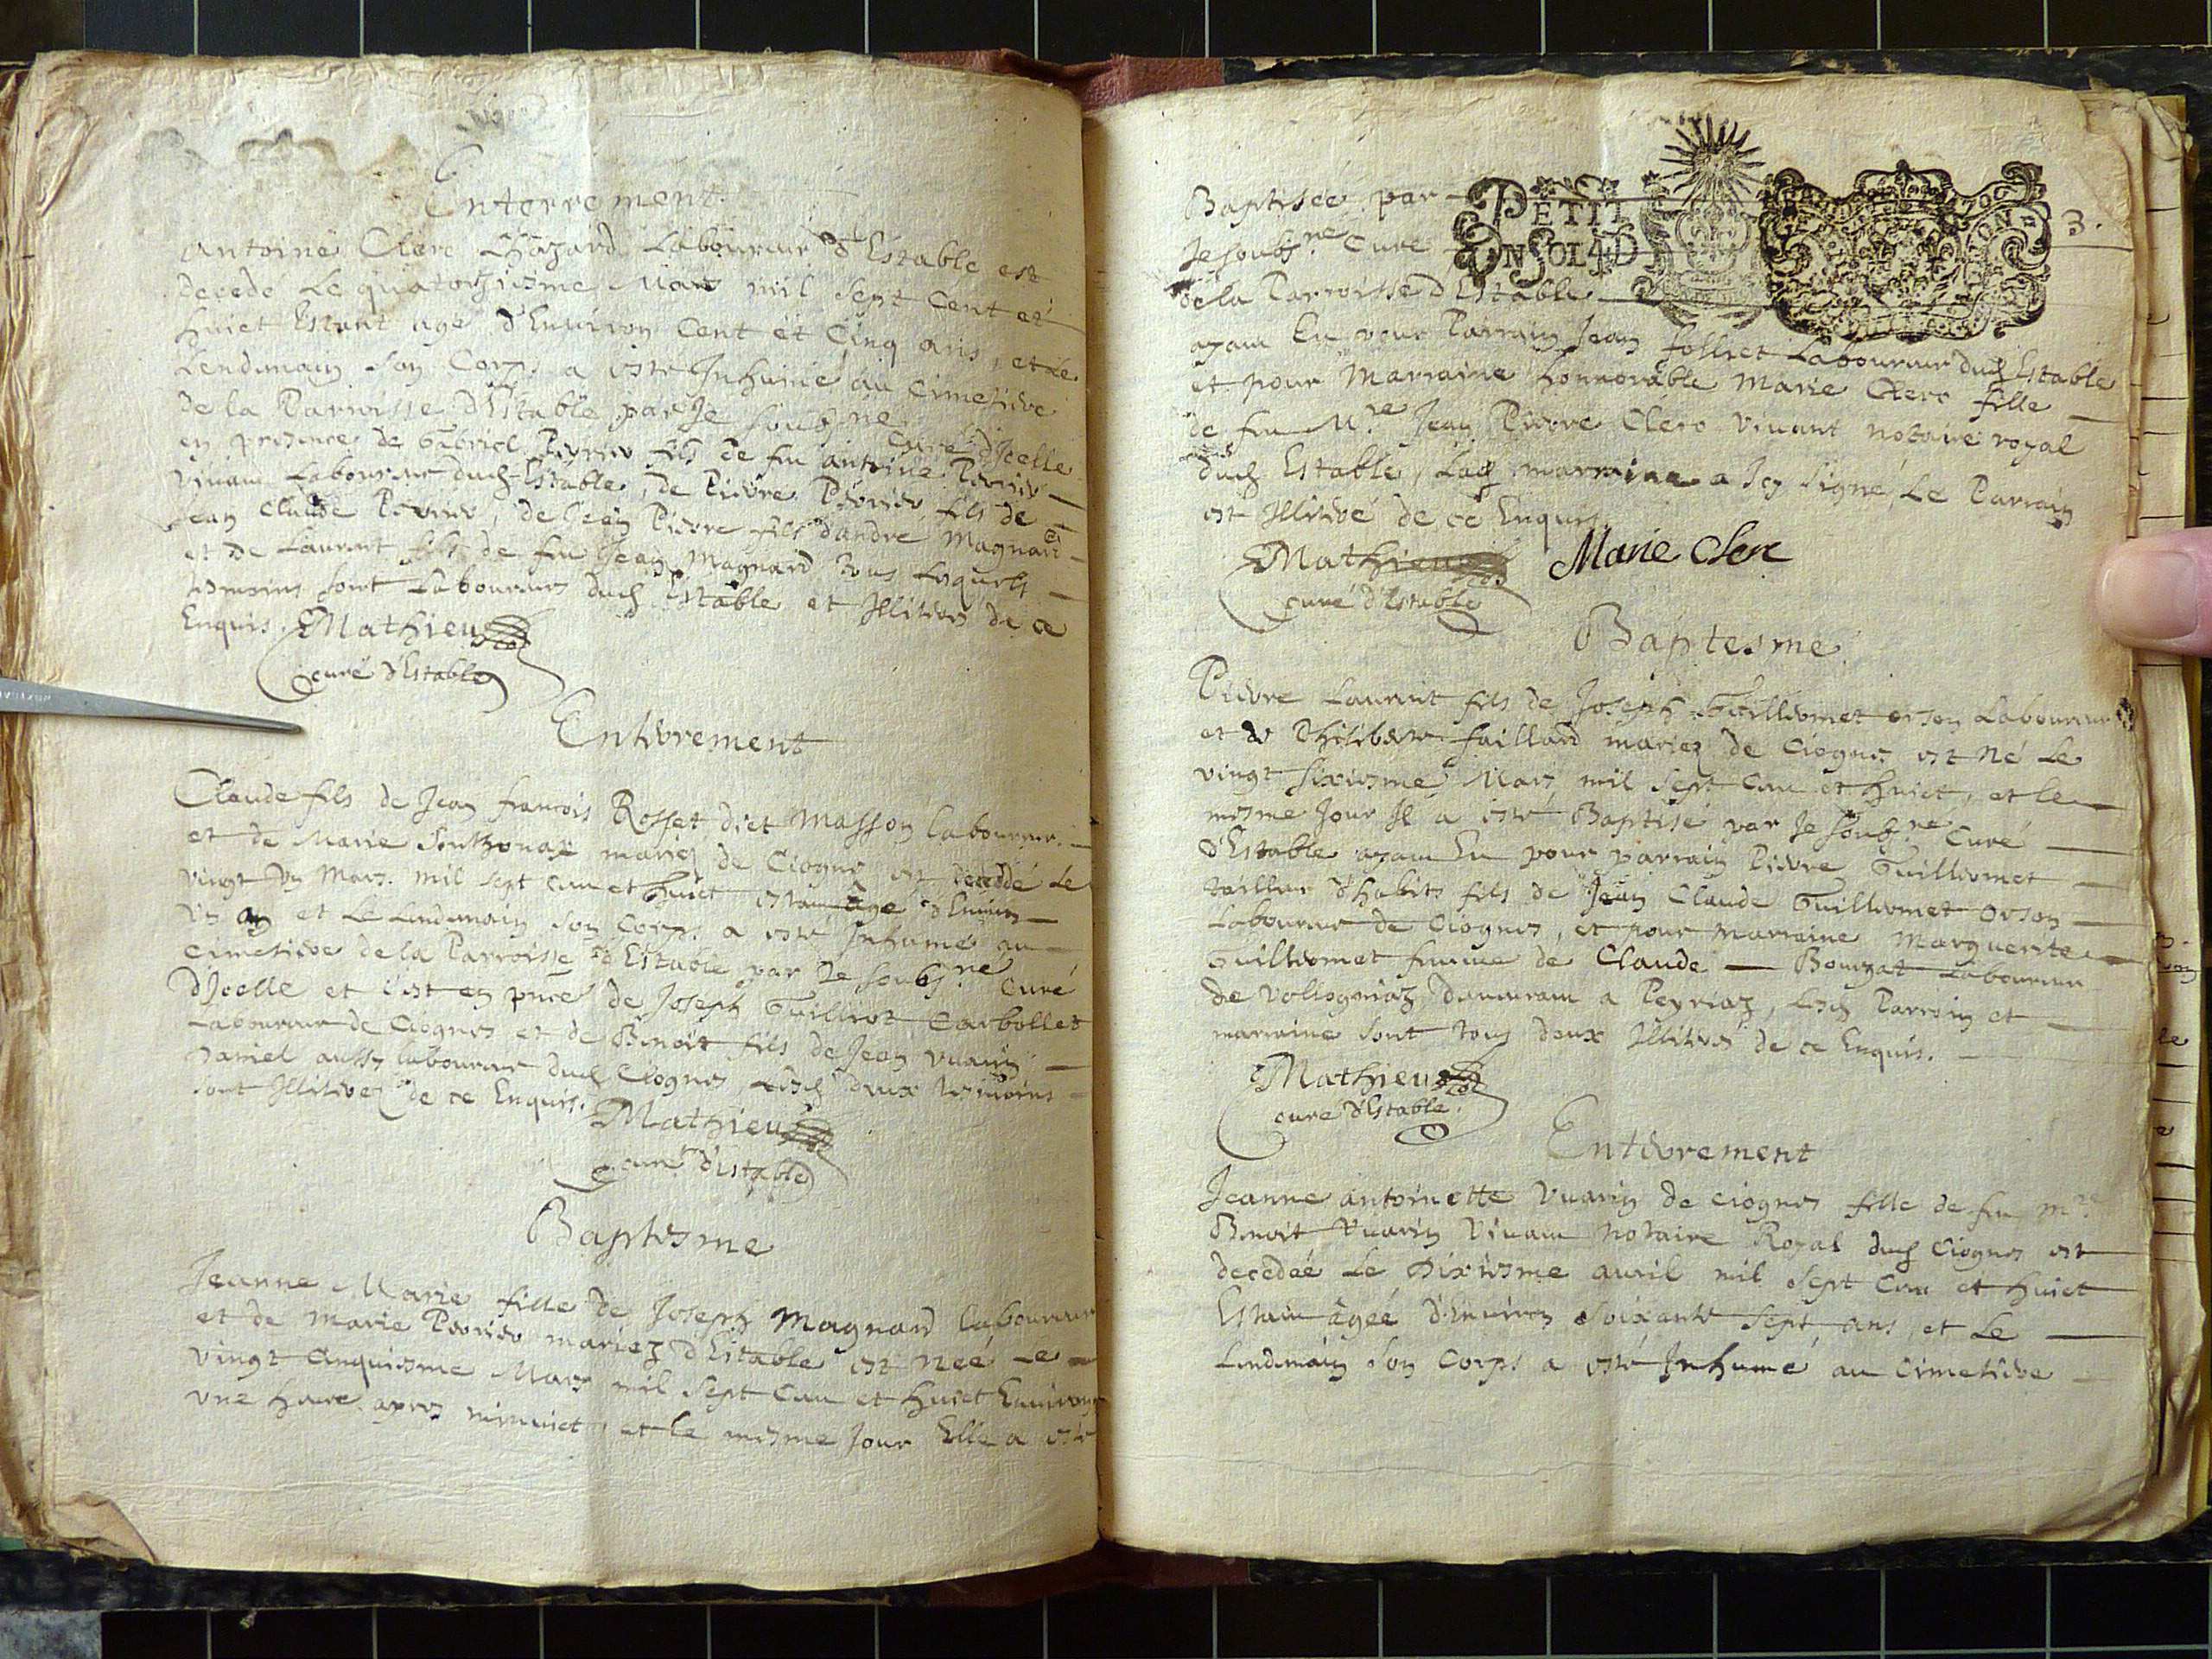 Enterrement.
Antoine Clerc Laboureur d'Estable est
decedé Le quatorziesme Mars mil sept Cent et
huict Estant agé d'Environ Cent et Cinq ans, et Le
Lendemain son Corps a esté Inhumé au Cimetiere
de la Parroisse d'Estable par Je soubs.né
Curé d'Icelle
en presence de Gabriel Perrier fils de feu antoine Perrier
vivant Laboureur dud Estable, de Pierre Perrier fils de
Jean Claude Perrier, de Jean Pierre fils d'andre Magnard
et de Laurent fils de feu Jean Magnard tous Lesquels
tesmoins sont Laboureurs dud Estable et Illiteres de ce
Enquis. Mathieu
curé d'Estable
Enterrement
Claude fils de Jean francois Rosset dict Masson laboureur
et de Marie mariez de Ciognes est decedé Le
vingt un Mars mil sept cent et huict estant agé d'Environ
un an et Le Lendemain son Corps a esté Inhumé au
Cimetiere de la Parroisse d'Estable par Je soubs.né Curé
d'Icelle et c'est en pnce de Joseph Guillirot Carbollet
Laboureur de Ciognes et de Benoit fils de Jean Vuarin
Daniel aussy laboureur dud Ciognes Lesd deux tesmoins
sont Illiterez de ce Enquis.
Mathieu
curé d'Estable
Baptesme
Jeanne Marie fille de Joseph Magnard laboureur
et de Marie Perrier mariez d'Estable est née Le
vingt cinquiesme Mars mil sept cent et huict Environ
une heure apres minuict, et le mesme Jour Elle a esté
Baptisée par
Je soubs.né Curé
PETIT
EN SOL 4 D
3.
de la Parroisse d'Estable
ayant Eu pour Parrain Jean Jolliet Laboureur dud Estable
et pour Marraine honnorable Marie Clerc fille
de feu M.re Jean Pierre Clerc vivant notaire royal
dud Estable, Lad marraine a Icy signé, Le Parrain
est Illiteré de ce Enquis.
Mathieu Marie Clerc
curé d'Estable
Baptesme
Pierre Laurent fils de Joseph Guilliermet orson Laboureur
et de Philiberte faillard mariez de Ciognes est né Le
vingt sixiesme Mars mil sept cent et huict, et le
mesme Jour Il a esté Baptisé par Je soubs.né Curé
d'Estable ayant Eu pour parrain Pierre Guilliermet
tailleur d'habits fils de Jean Claude Guilliermet orson
Laboureur de Ciognes, et pour marraine Marguerite
Guilliermet femme de Claude Laboureur
de Vollogniaz demeurant a Peyriaz, Lesd Parrain et
marraine sont tous deux Illiteres de ce Enquis.
Mathieu
curé d'Estable.
Enterrement
Jeanne antoinette Vuarin de Ciognes fille de feu m.re
Benoit Vuarin vivant notaire Royal dud Ciognes est
decedée Le dixiesme avril mil sept cent et huict
Estant agée d'Environ soixante sept ans, et Le
Lendemain son Corps a esté Inhumé au Cimetiere